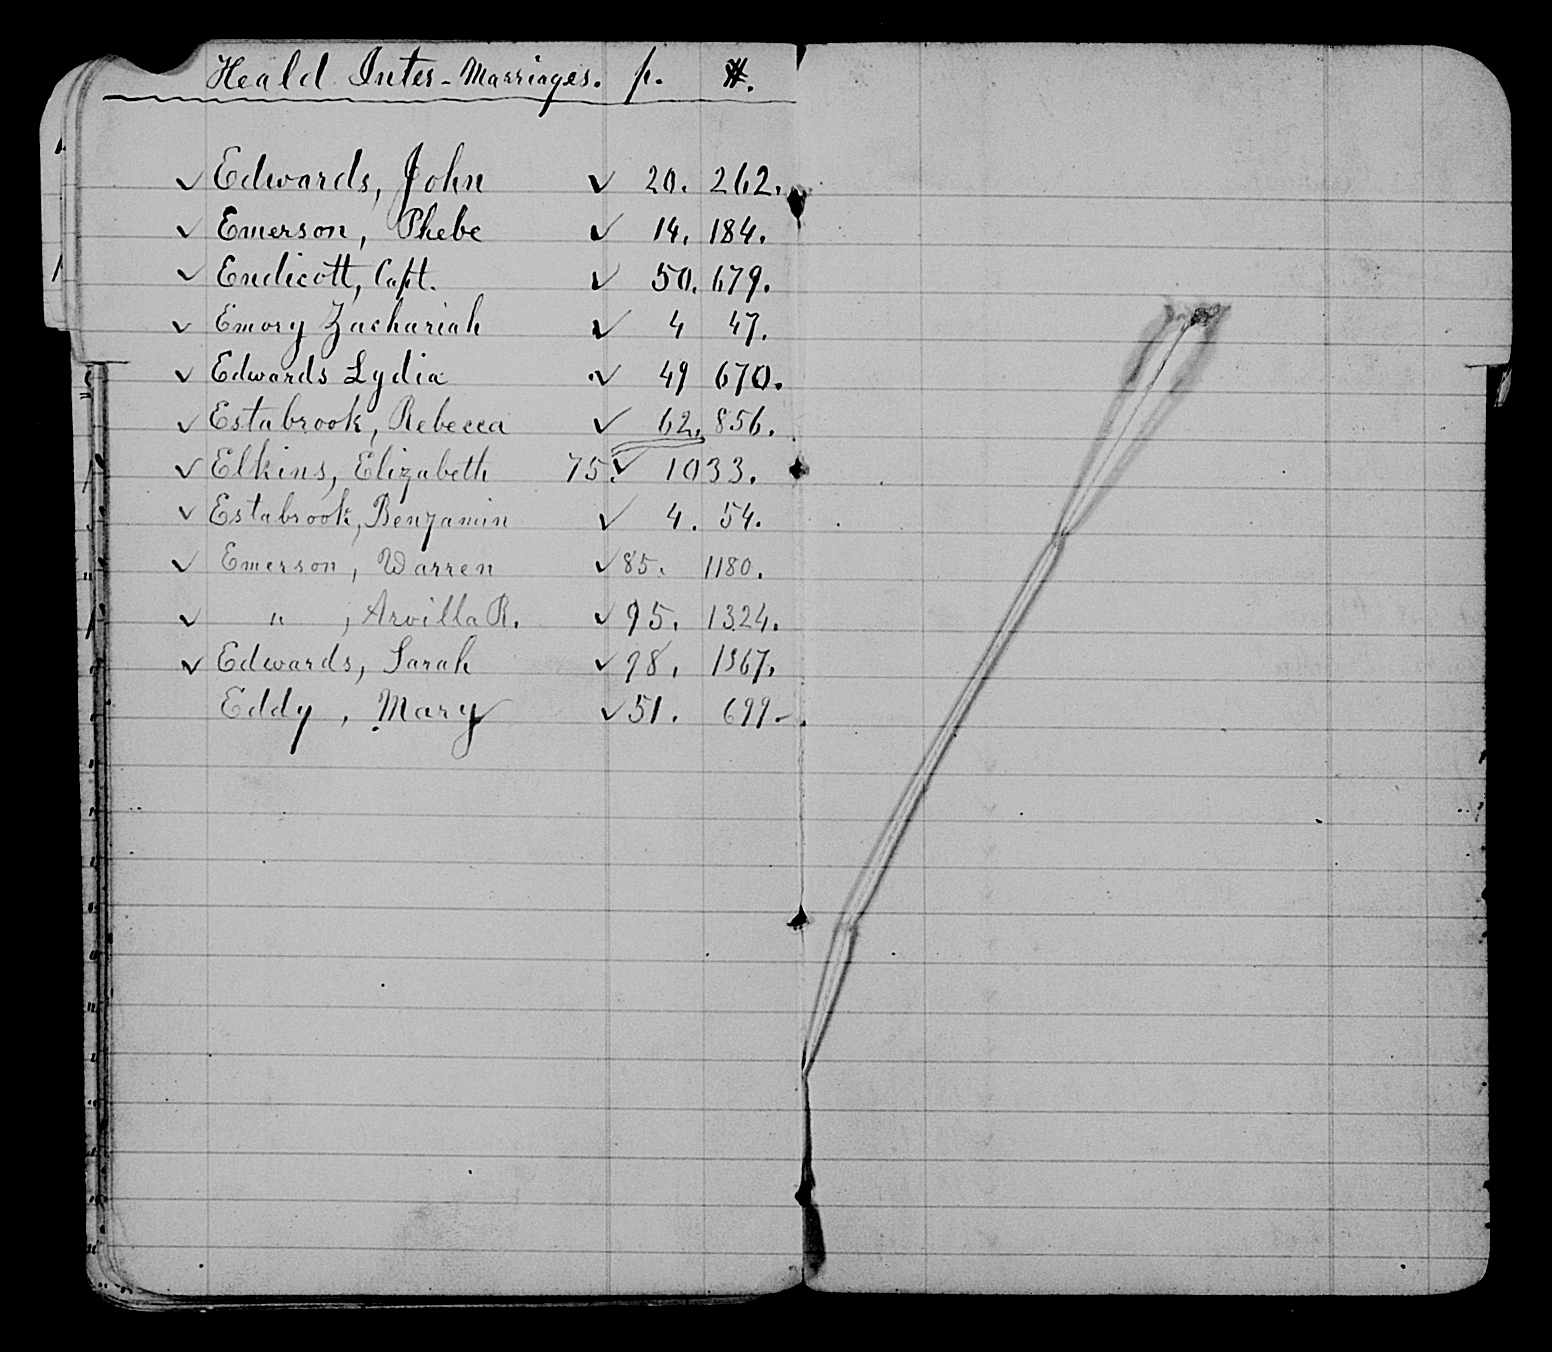 Heald Inter-Marriages. p. #.
✓ Edwards, John ✓ 20. 262.
✓ Emerson, Phebe ✓ 14. 184.
✓ Endicott, Capt. ✓ 50. 679.
✓ Emory Zachariah ✓ 4 47.
✓ Edwards Lydia ✓ 49 670.
✓ Estabrook, Rebecca ✓ 62. 856.
✓ Elkins, Elizabeth 75. ✓ 1033.
✓ Estabrook, Benjamin ✓ 4. 54.
✓ Emerson, Warren ✓ 85. 1180.
✓ " , Arvilla R. ✓ 95. 1324.
✓ Edwards, Sarah ✓ 98. 1367.
Eddy, Mary ✓ 51. 699-.